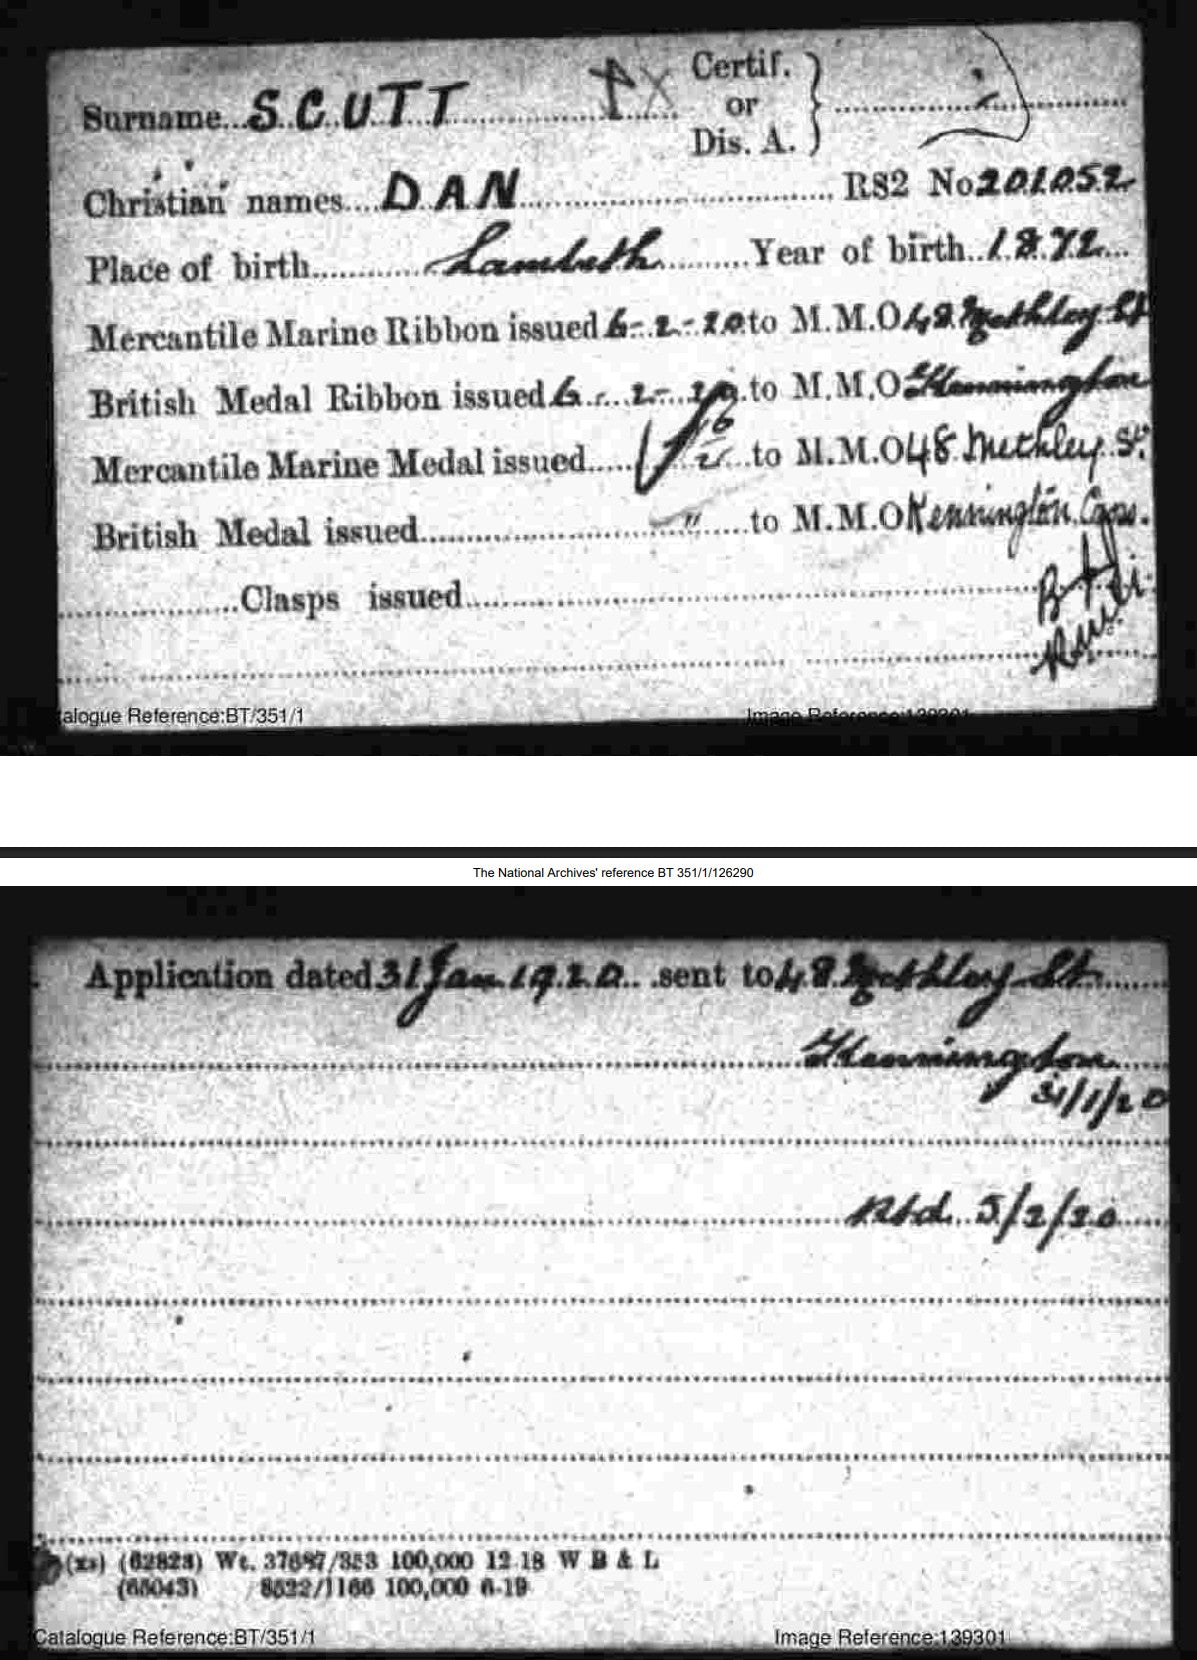 Certif.
Surname... SCUTT or
Dis. A.
Christian names.... DAN RS2 No 201052
Place of birth Lambeth Year of birth 1872
Mercantile Marine Ribbon issued 6-2-20 to M.M.O 48 Methley St
British Medal Ribbon issued 6-2-20 to M.M.O Kennington
Mercantile Marine Medal issued to M.M.O 48 Methley St.
British Medal issued " to M.M.O Kennington
Clasps issued
alogue Reference:BT/351/1 Image Reference:139301
The National Archives' reference BT 351/1/126290
Application dated 31 Jan 1920 sent to 48 Methley St
Kennington
31/1/20
Rtd. 5/2/20
(62828) Wt. 37687/353 100,000 12 18 W B & L
(65043) 8522/1166 100,000 6-19
Catalogue Reference:BT/351/1 Image Reference:139301